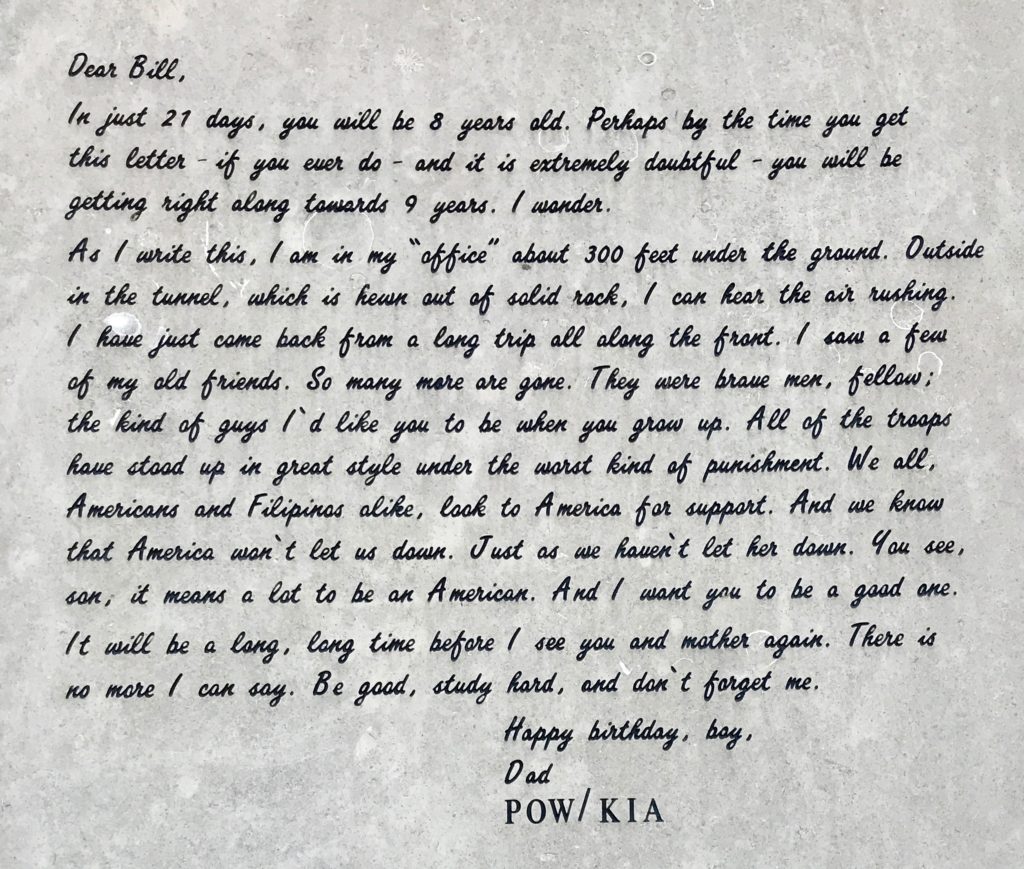 Dear Bill,
In just 21 days, you will be 8 years old. Perhaps by the time you get
this letter - if you ever do - and it is extremely doubtful - you will be
getting right along towards 9 years. I wonder.
As I write this, I am in my "office" about 300 feet under the ground. Outside
in the tunnel, which is hewn out of solid rock, I can hear the air rushing.
I have just come back from a long trip all along the front. I saw a few
of my old friends. So many more are gone. They were brave men, fellow;
the kind of guys I`d like you to be when you grow up. All of the troops
have stood up in great style under the worst kind of punishment. We all,
Americans and Filipinos alike, look to America for support. And we know
that America won`t let us down. Just as we haven`t let her down. You see,
son, it means a lot to be an American. And I want you to be a good one.
It will be a long, long time before I see you and mother again. There is
no more I can say. Be good, study hard, and don`t forget me.
Happy birthday, boy,
Dad
POW/KIA